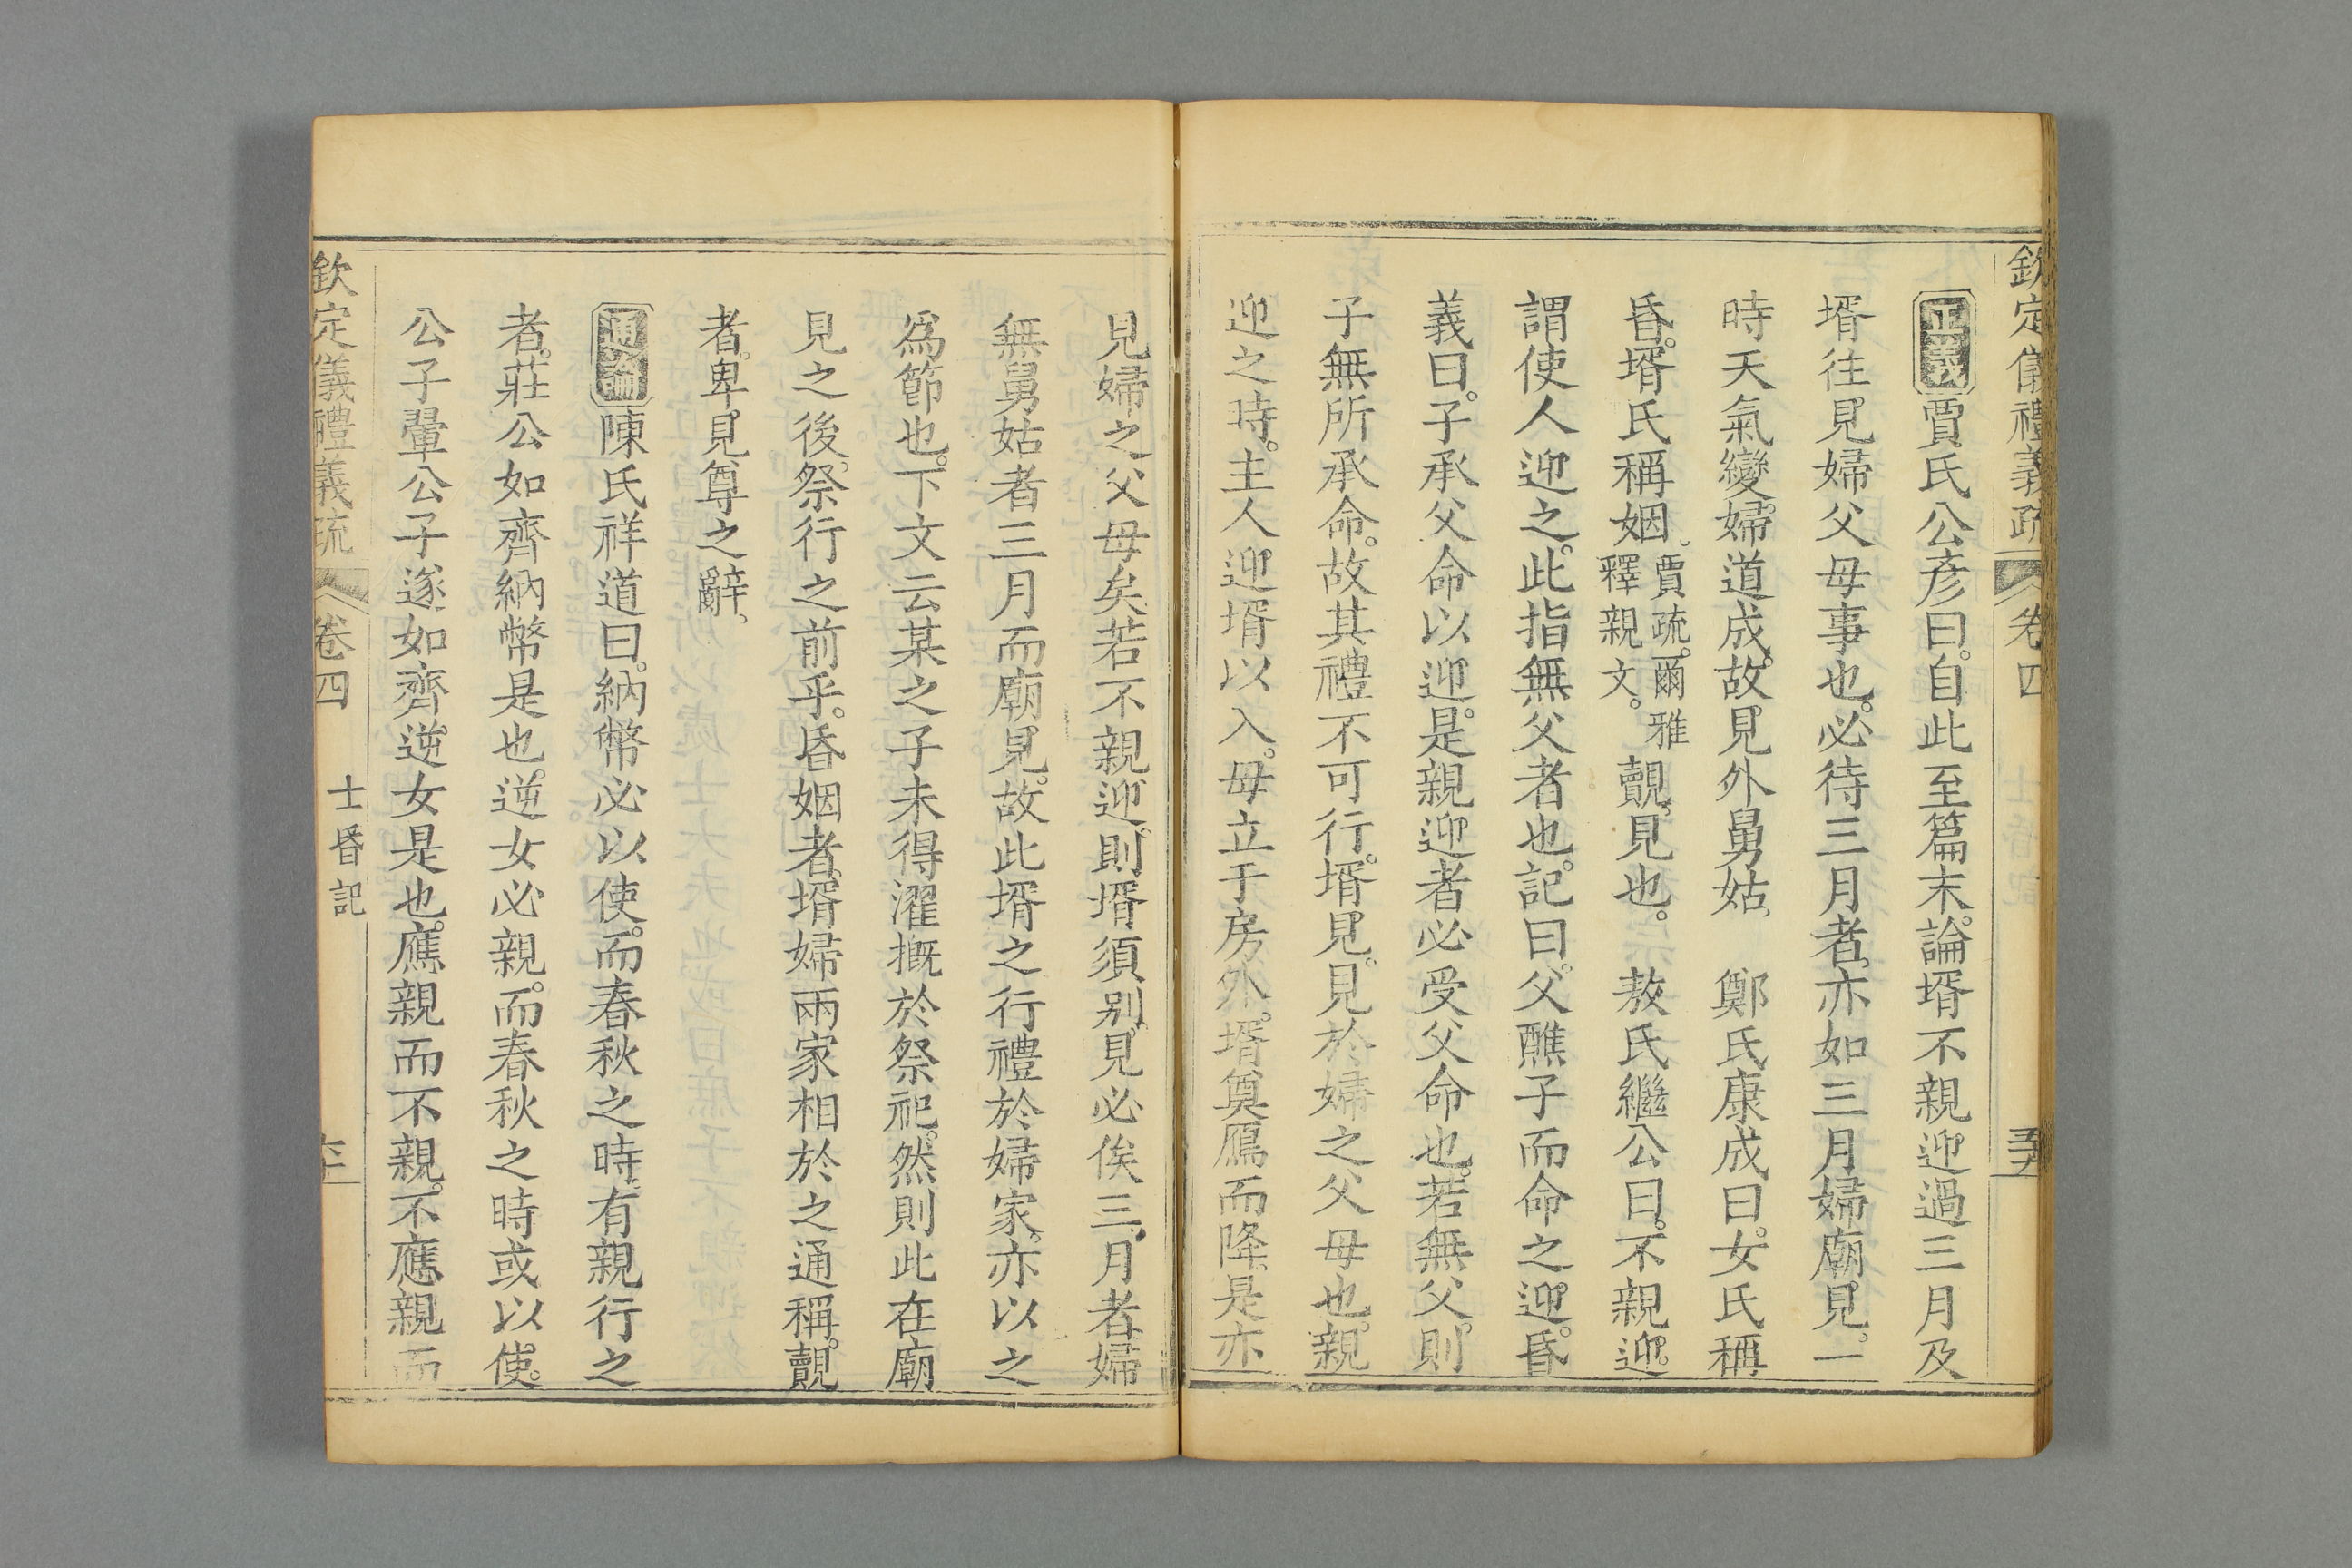 欽定儀禮義疏 卷四
正義賈氏公彥曰。自此至篇末。論壻不親迎過三月及
壻往見婦父母事也。必待三月者、亦如三月婦廟見、一
時天氣變、婦道成。故見外舅姑、 鄭氏康成曰。女氏稱
昏。壻氏稱姻、賈疏。爾雅釋親文。覿、見也。 敖氏繼公曰。不親迎。
謂使人迎之。此指無父者也。記曰。父醮子而命之迎。昏
義曰。子承父命以迎。是親迎者必受父命也。若無父。則
子無所承命。故其禮不可行。壻見。見於婦之父母也。親
迎之時。主人迎壻以入。母立于房外。壻奠鴈而降、是亦
見婦之父母矣若不親迎、則壻須別見必俟三月者、婦
無舅姑者三月而廟見。故此壻之行禮於婦家、亦以之
爲節也。下文云某之子未得濯摡於祭祀。然則此在廟
見之後、祭行之前乎。昏姻者、壻婦兩家相於之通稱。覿
者、卑見尊之辭、
通論陳氏祥道曰。納幣必以使。而春秋之時、有親行之
者。莊公如齊納幣是也。逆女必親。而春秋之時或以使。
公子翬公子遂如齊逆女是也。應親而不親。不應親而
欽定儀禮義疏 卷四 士昏記